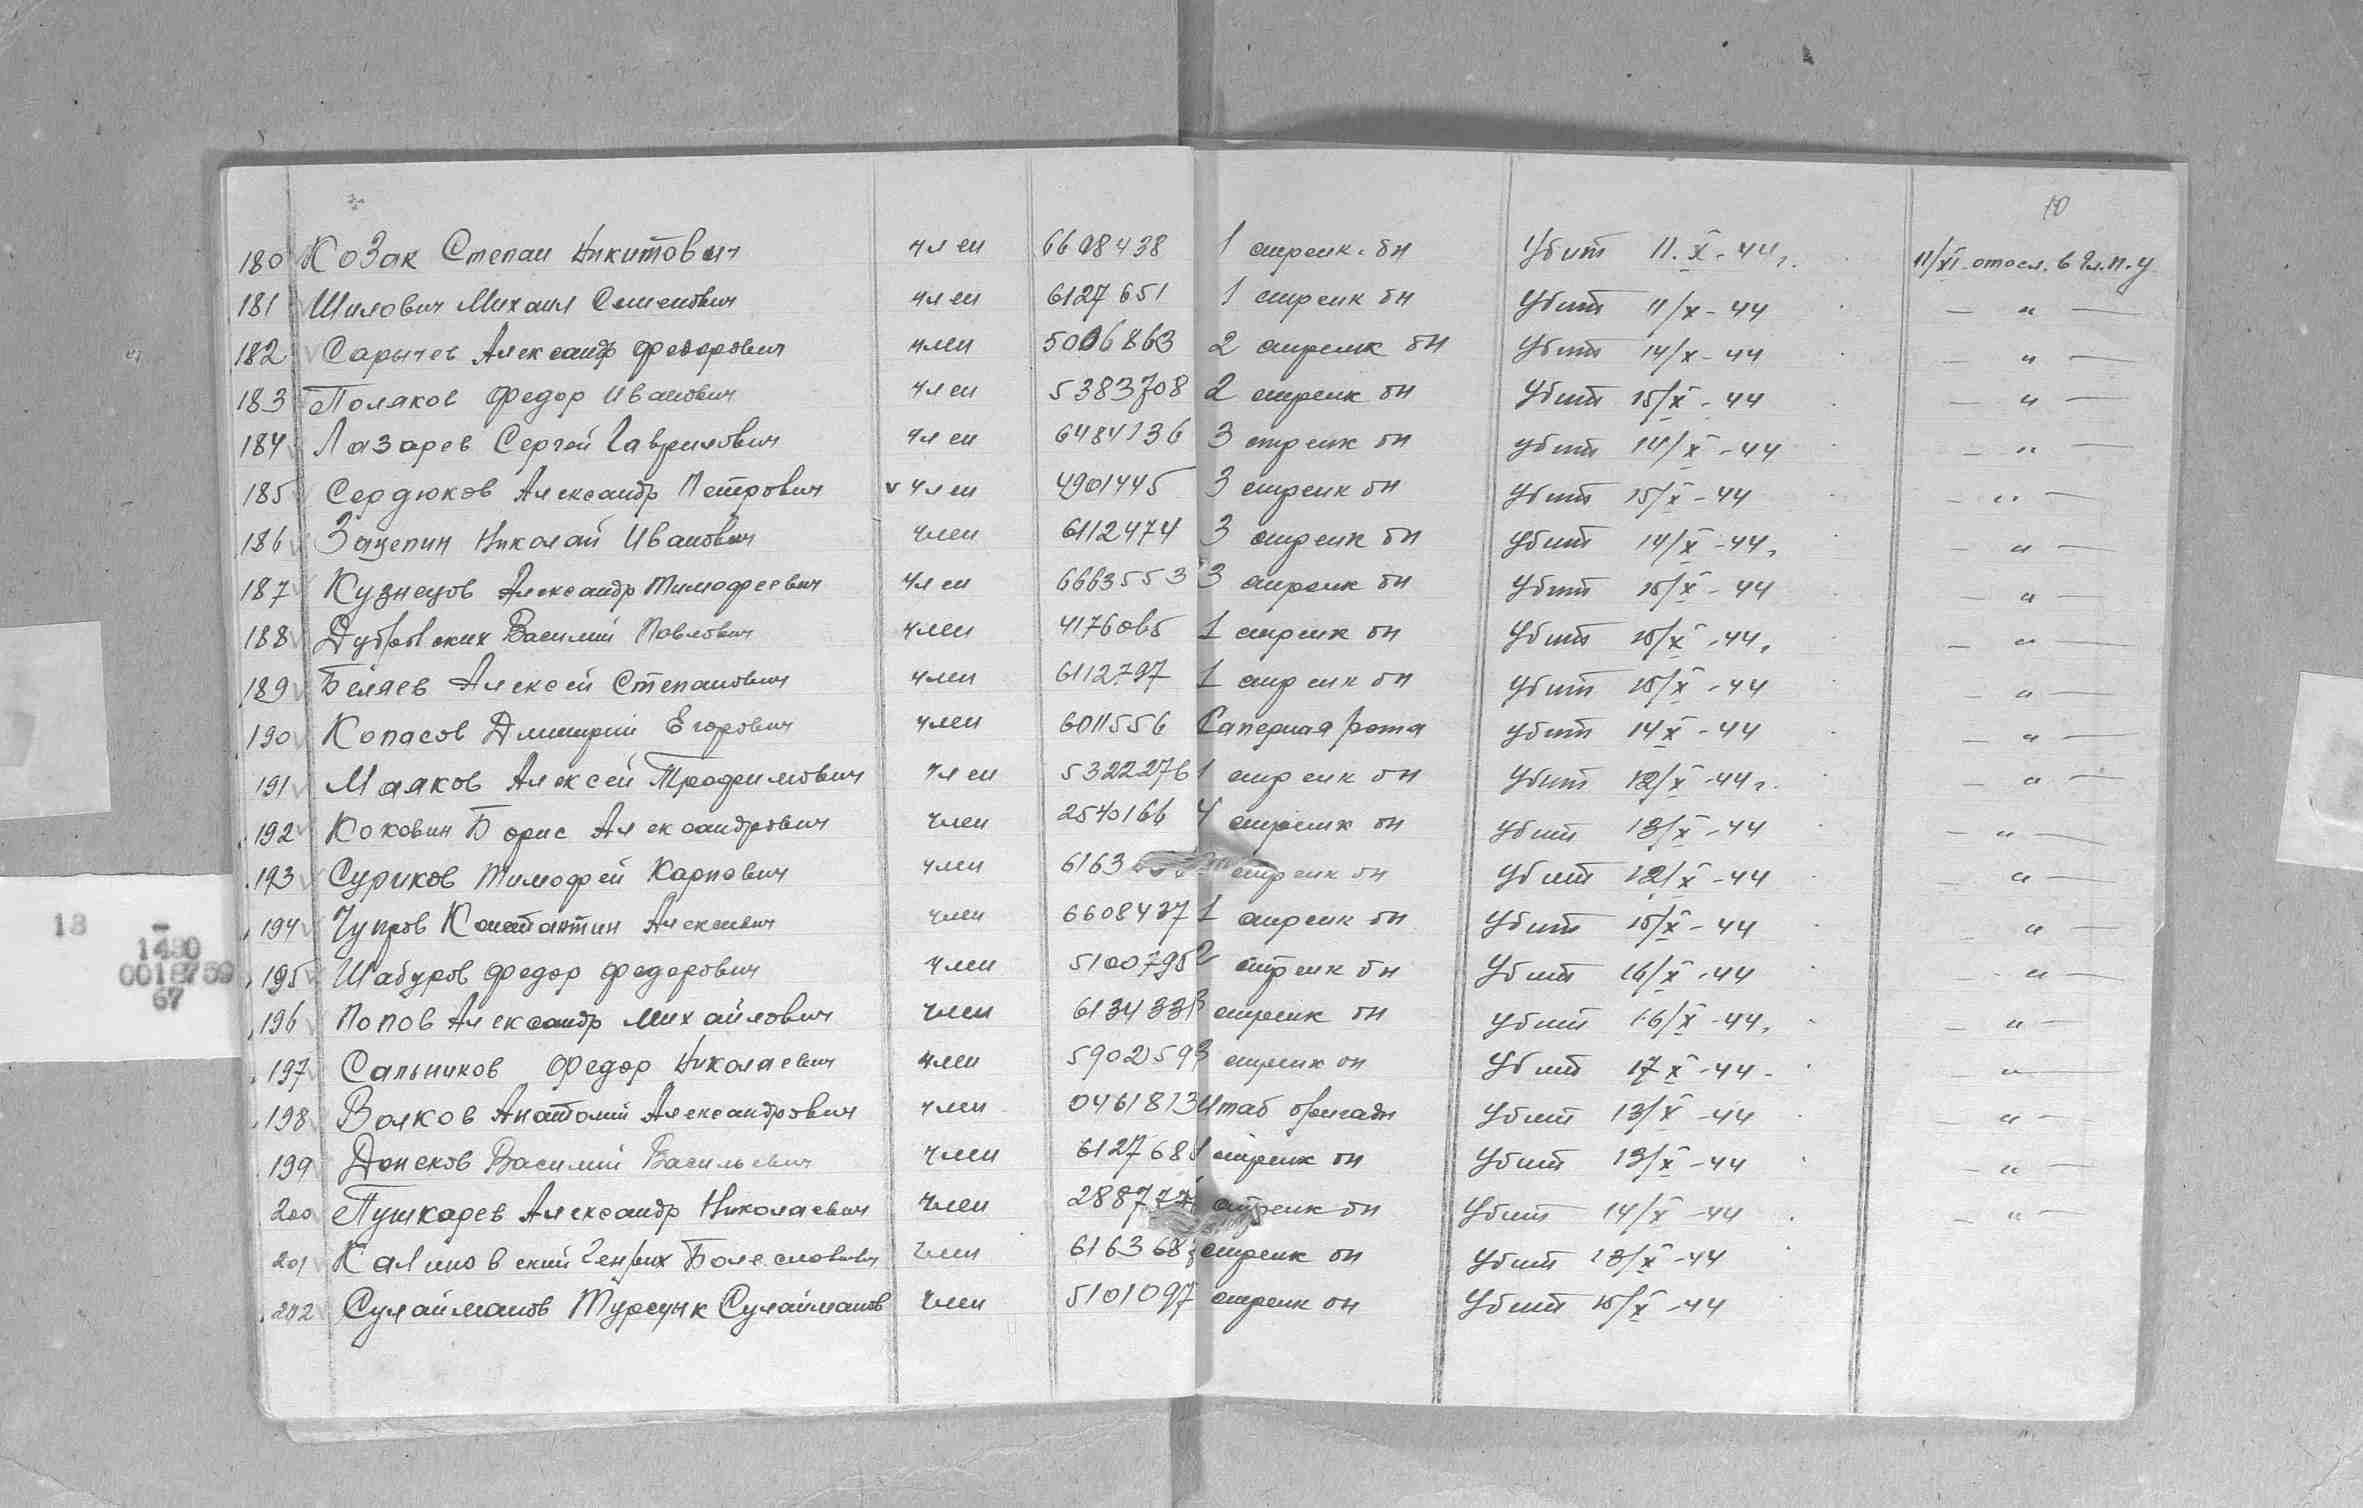 10
180 Козак Степан Никитович член 6608438 1 стрелк. бн Убит 11.X-44г. 11/XI отосл. в Гл.п.у
181 Шилович Михаил Семенович член 6127651 1 стрелк бн Убит 11/X-44 — " —
182 Сарычев Александр Федорович член 5006863 2 стрелк бн Убит 14/X-44 — " —
183 Поляков Федор Иванович член 5383708 2 стрелк бн Убит 15/X-44 — " —
184 Лазарев Сергей Гаврилович член 6484136 3 стрелк бн Убит 14/X-44 — " —
185 Сердюков Александр Петрович v член 4901445 3 стрелк бн Убит 15/X-44 — " —
186 Зацепин Николай Иванович член 6112474 3 стрелк бн Убит 14/X-44, — " —
187 Кузнецов Александр Тимофеевич член 6663553 3 стрелк бн Убит 15/X-44 — " —
188 Дубровских Василий Павлович член 4176065 1 стрелк бн Убит 15/X-44, — " —
189 Беляев Алексей Степанович член 6112797 1 стрелк бн Убит 15/X-44 — " —
190 Копасов Дмитрий Егорович член 6011556 Саперная рота Убит 14X-44 — " —
191 Маяков Алексей Трофимович член 5322276 1 стрелк бн Убит 12/X-44г. — " —
192 Коковин Борис Александрович член 2540166 4 стрелк бн Убит 13/X-44 — " —
193 Суриков Тимофей Карпович член 6163 стрелк бн Убит 12/X-44 — " —
194 Чупров Константин Алексеевич член 6608427 1 стрелк бн Убит 15/X-44 — " —
195 Шабуров Федор Федорович член 5100795 2 стрелк бн Убит 16/X-44 — " —
196 Попов Александр Михайлович член 613433 3 стрелк бн Убит 16/X-44, — " —
197 Сальников Федор Николаевич член 590259 3 стрелк бн Убит 17X-44- — " —
198 Волков Анатолий Александрович член 0461813 Штаб бригады Убит 13/X-44 — " —
199 Донсков Василий Васильевич член 612768 1 стрелк бн Убит 13/X-44 — " —
200 Пушкарев Александр Николаевич член 28877 стрелк бн Убит 14/X-44 — " —
201 Калиновский Генрих Болеславович член 616368 стрелк бн Убит 13/X-44
202 Сулайманов Турсунк Сулайманов член 5101097 стрелк бн Убит 15/X-44
13
1480
0018759
67